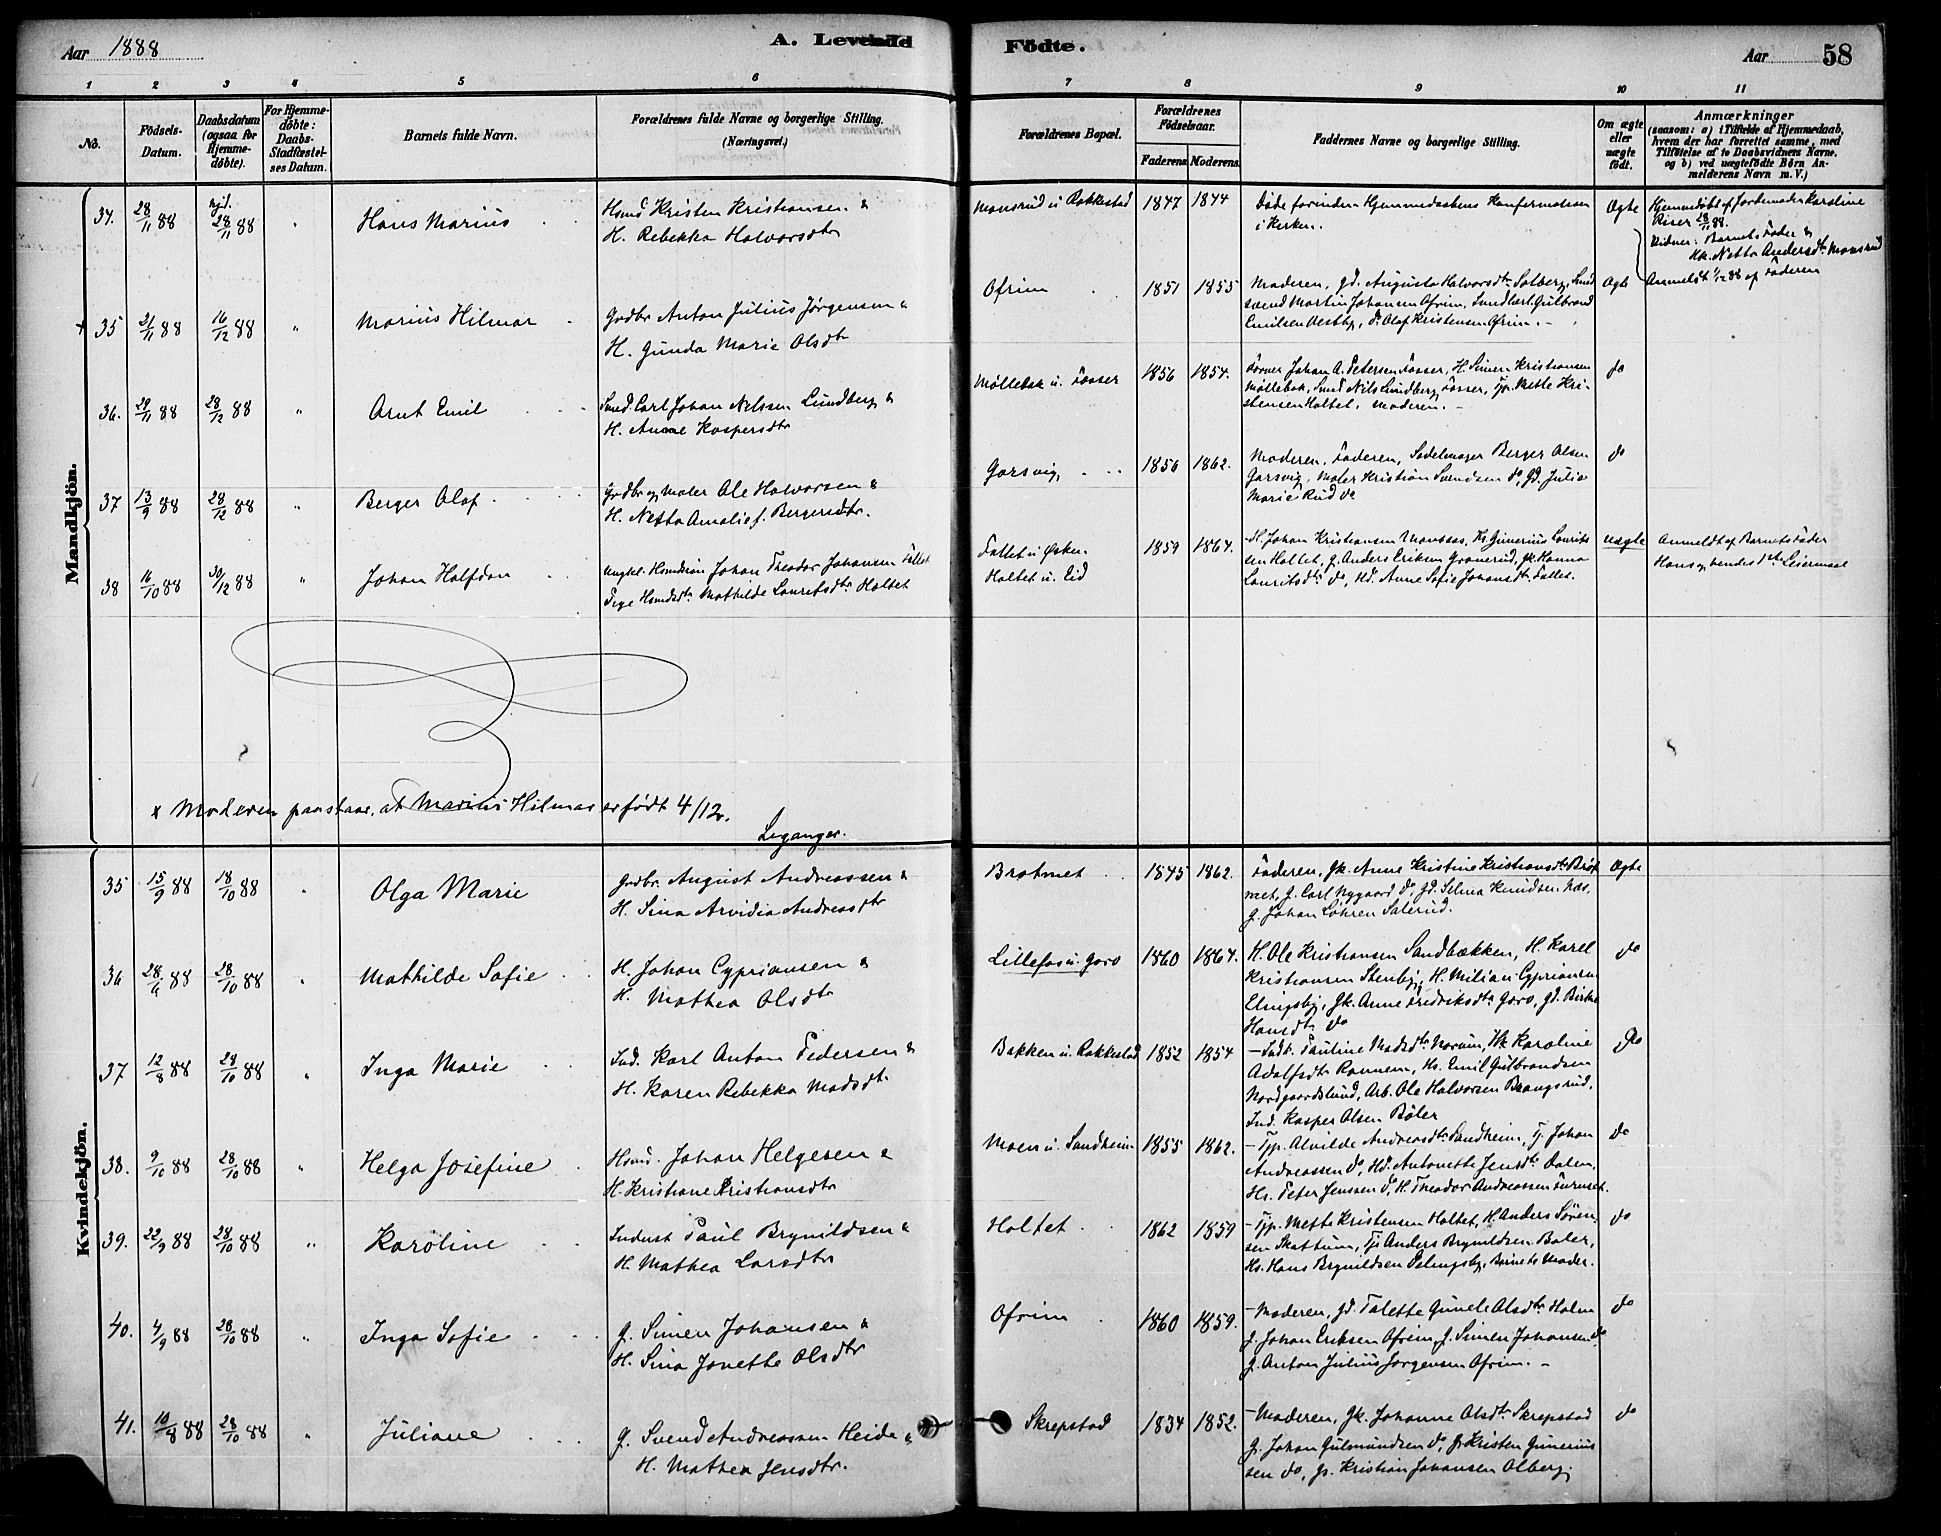 Aar 1888
A. Levende
Födte.
Aar 58
1 2 3 4 5 6 7 8 9 10 11
No.
Födsels-Datum.
Daabsdatum (ogsaa for Hjemme-döbte).
For Hjemme-döbte: Daabs-Stadfæstel-ses Datum.
Barnets fulde Navn.
Forældrenes fulde Navne og borgerlige Stilling. (Næringsvei.)
Forældrenes Bopæl.
Forældrenes Födselsaar.
Faderens. Moderens.
Faddernes Navne og borgerlige Stilling.
Om ægte eller uægte födt.
Anmærkninger
(saasom: a) i Tilfælde af Hjemmedaab,
hvem der har forrettet samme, med
Tilföielse af to Daabsvidners Navne.
og b) ved uægtefödte Börn An-
melderens Navn m. V.)
Mandkjön.
34. 28/11 88 hjd. 28/11 88 " Hans Marius
Hsmd Kristen Kristiansen &
H. Rebekka Halvorsdtr
Monsrud u Rakkestad 1847 1844
Døde forinden Hjemmedaabens Konfirmation
i Kirken.
Ægte
Hjemmedøbt af Jordemoder Karoline
Riser 28/11 88.
Vidner: Barnets Fader &
Hk. Netta Andersdtr Monsrud
Anmeldt 1/12 88 af Faderen
+ 35 21/11 88 16/12 88 " Marius Hilmar
Grdbr Anton Julius Jørgensen &
H. Gunda Marie Olsdtr
Ofrim 1851 1855
Moderen, Gd. Augusta Halvorsdtr Solberg,
Martin Johansen Ofrim, Gulbrand
Emilsen Vestby, do Olaf Kristensen Ofrim.
Ægte
36. 29/11 88 28/12 88 " Arnt Emil
Smed Carl Johan Nilssen Lundberg &
H. Anne Kaspersdtr
Møllebak u. Fosser 1856 1854.
Johan A. Petersen Fosser, H. Simen Kristiansen
Møllebak, Smed Nils Lundberg Fosser, Tp. Mette Kri-
stensen Holtet, Moderen.
do
37 13/9 88 28/12 88 " Berger Olaf
Grdbr og Maler Ole Halvorsen &
H. Netta Amalie f. Bergersdtr.
Garsvig 1856 1862.
Moderen, Faderen, Sadelmager Berger Olsen
Garsvig, Maler Kristian Svendsen do Gd. Julie
Marie Rud do
do
38 16/10 88 30/12 88 " Johan Halfdan
Ungkl. Hsmdssøn Johan Theodor Johansen Fallet
Pige Hsmdsdtr Mathilde Lauritsdtr Holtet
Fallet u.
Holtet u. Eid 1859 1864.
H. Johan Kristiansen Monsaas, Hs Gunerius Laurit-
sen Holtet, g. Anders Eriksen Granerud, Gk. Hanna
Lauritsdtr do, Hd. Anne Sofie Johansdtr Fallet.
uægte
Anmeldt af Barnets Fader
Hans og hendes 1ste Leiermaal
x Moderen paastaar, at Marius Hilmar er født 4/12.
Leganger.
Kvindekjön.
35 15/9 88 18/10 88 " Olga Marie
Grdbr. August Andreassen &
H. Sina Arvidia Andreasdtr
Brotmet 1845 1862.
Faderen, Gk. Anne Kristine Kristiansdtr Brot-
met, g. Carl Nygaard do, Gd. Selma Knudsen Næs,
g. Johan Løhren Salerud.
Ægte
36 28/6 88 28/10 88 " Mathilde Sofie
H. Johan Cypriansen &
H. Mathea Olsdtr
Lillefos u. Goro 1860 1864.
H. Ole Kristiansen Sandbækken, H. Karel
Kristiansen Stenby, H. Milian Cypriansen
Elingsby, Gk. Anne Fredriksdtr Goro, Gd. Birthe
Hansdtr do
do
37 12/8 88 28/10 88 " Inga Marie
Ind. Karl Anton Pedersen &
H. Karen Rebekka Madsdt.
Bakken u. Rakkestad 1852 1854
Indk. Pauline Madsdtr Narum, Hk. Karoline
Adolfsdtr Rannem, Hs. Emil Gulbrandsen
Nordgaardslund, Arb. Ole Halvorsen Brangsrud,
Ind. Kasper Olsen Bøler
do
38. 9/10 88 28/10 88 " Helga Josefine
Hsmd. Johan Helgesen &
H. Kristiane Kristiansdtr
Moen u. Sandheim 1855 1862.
Tjp. Alvilde Andreasdtr Sandheim, Tj. Johan
Andreassen do, Hd. Antonette Jensdtr Dalen,
Hs. Peter Jenssen do, H. Theodor Andreassen Furuset.
do
39. 22/9 88 28/10 88 " Karoline
Inderst Paul Brynildsen &
H. Mathea Larsdtr
Holtet 1862 1859
Tjp. Mette Kristensen Holtet, H. Anders Søren-
sen Skattum, Tjs Anders Brynildsen Bøler,
Hs. Hans Brynildsen Elingsby, Barnets Moder.
do
40. 4/9 88 28/10 88 " Inga Sofie
G. Simen Johansen &
H. Sina Jonette Olsdtr
Ofrim 1860 1859.
Moderen, Gd. Talette Gunele Olsdtr Holm
g. Johan Eriksen Ofrim, g. Simen Johansen do,
g. Anton Julius Jørgensen Ofrim.
do
41. 10/8 88 28/10 88 " Juliane
G. Svend Andreassen Heide &
H. Mathea Jensdtr.
Skrepstad 1834 1852.
Moderen, Gk. Johanne Olsdtr Skrepstad
Gs. Johan Gulmundsen do, Gs Kristen Gunerius-
sen do, Gs. Kristian Johansen Olberg.
do